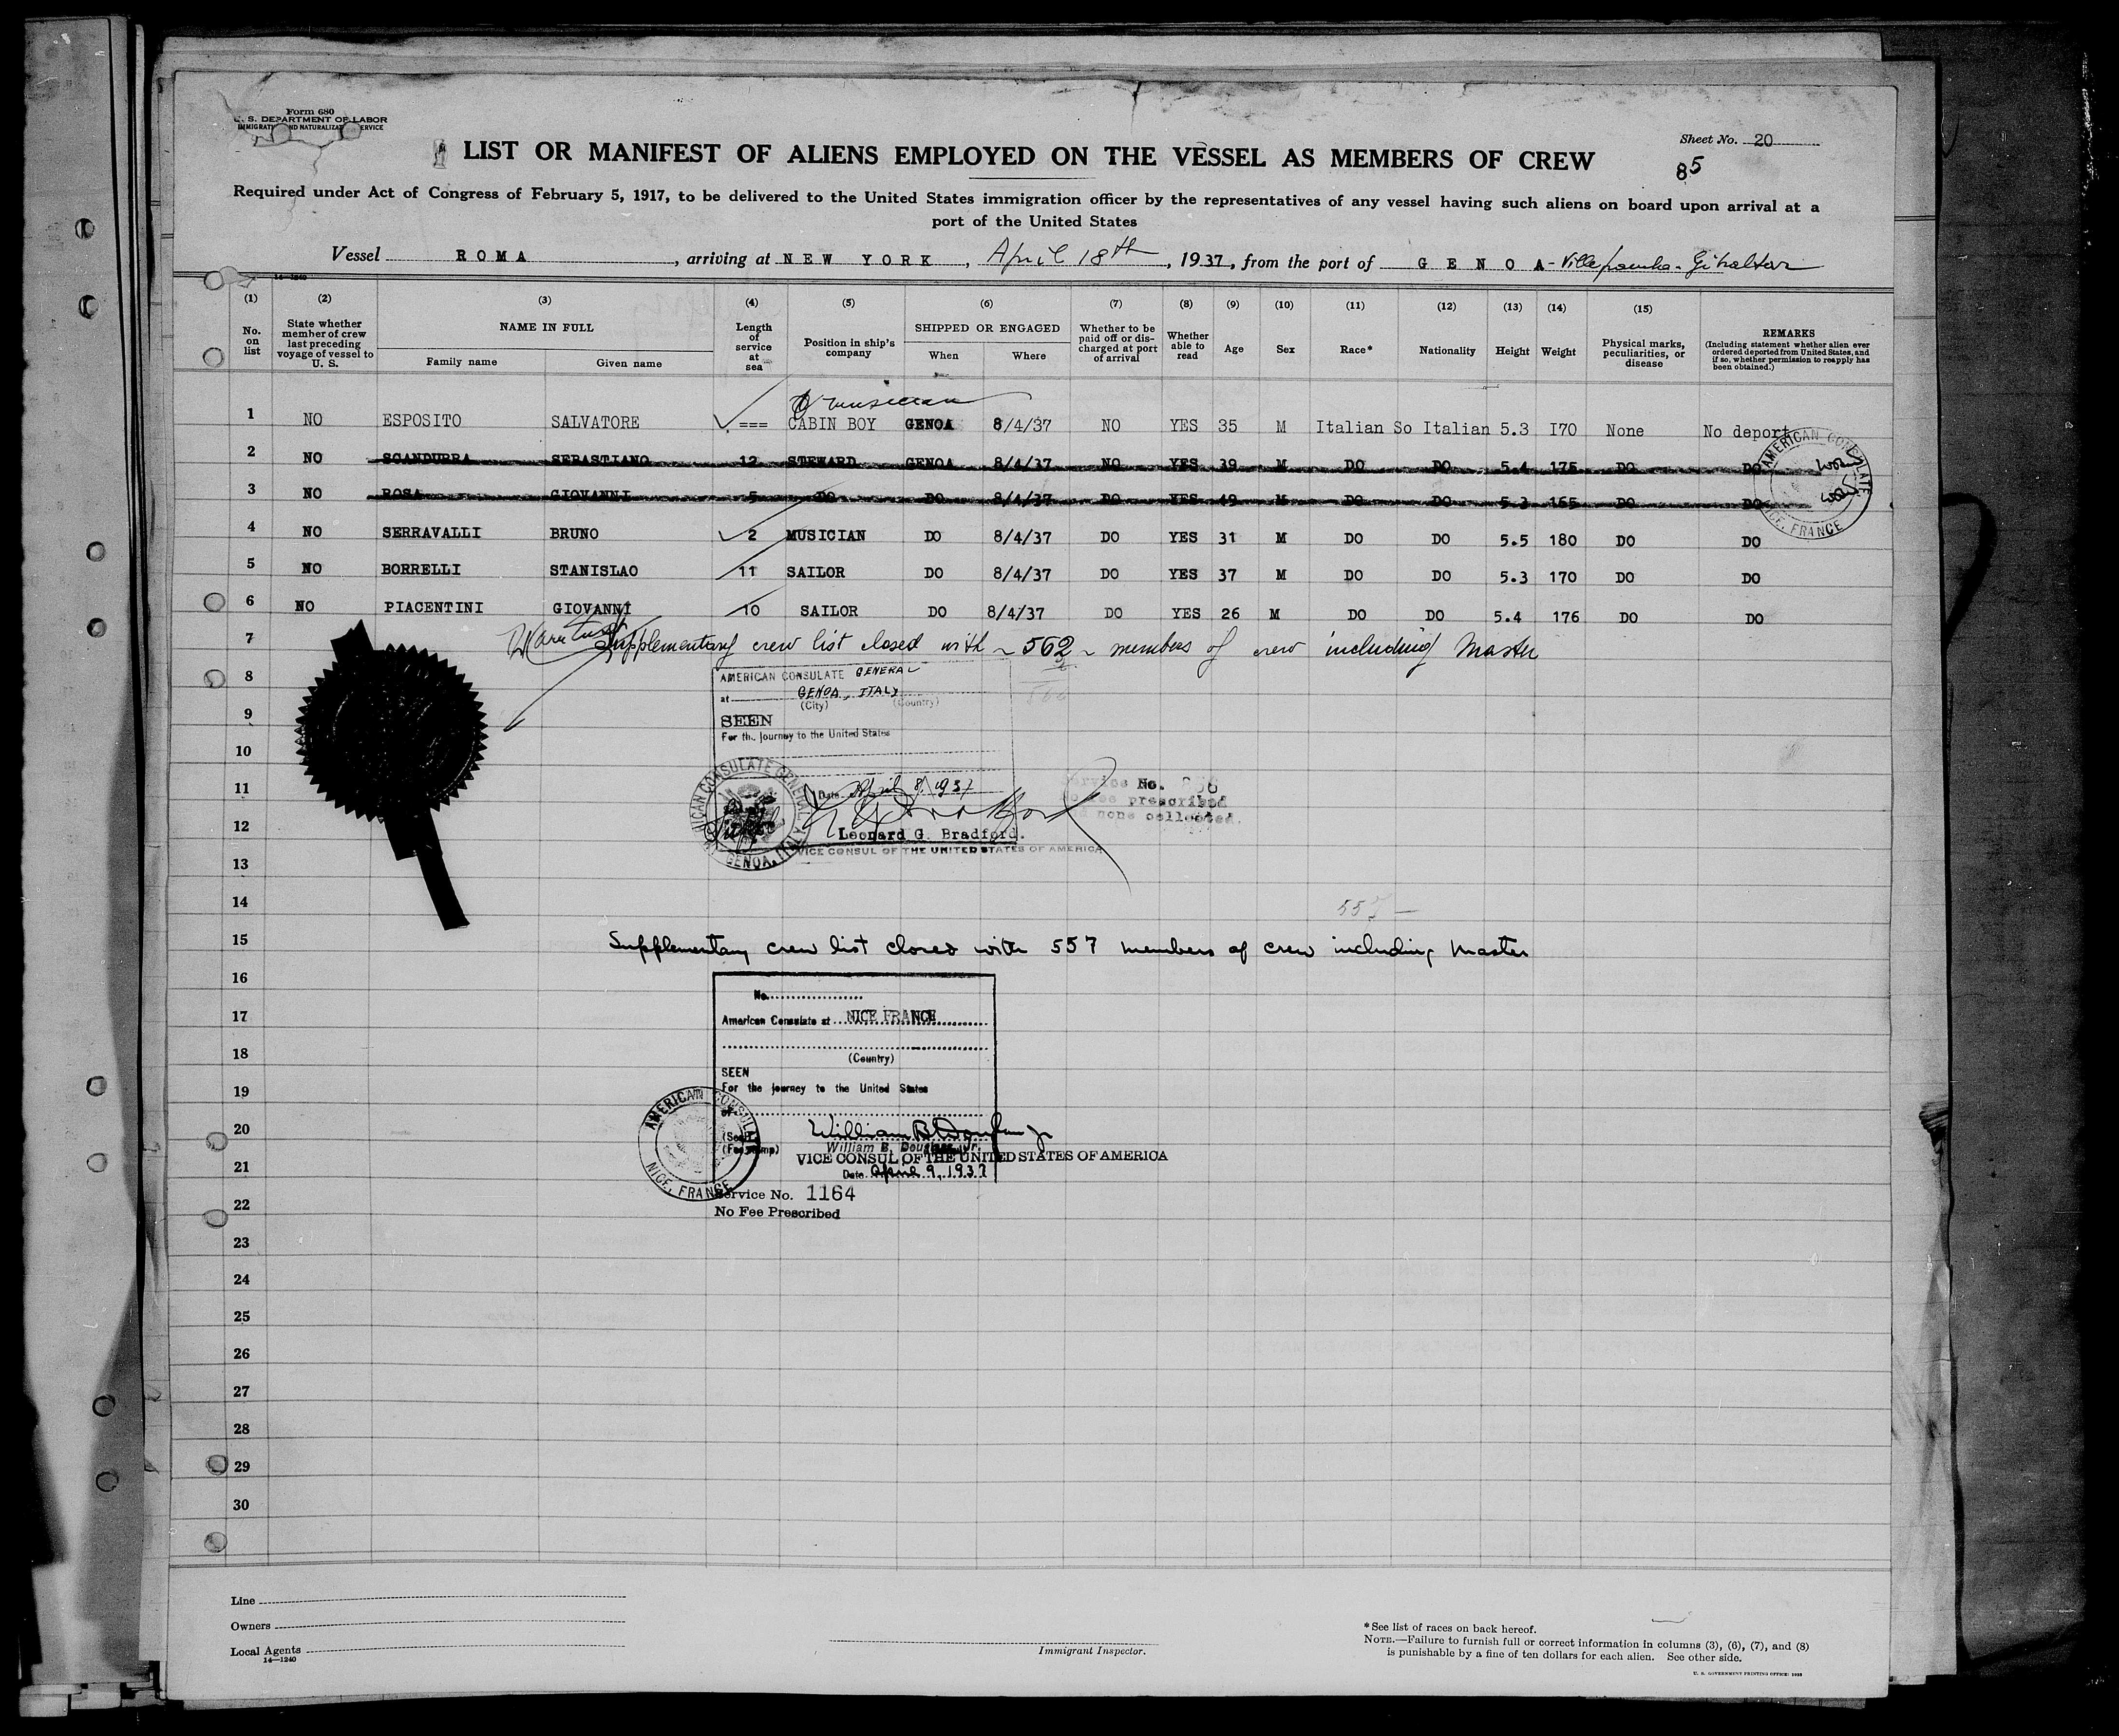 Form 680
U. S. DEPARTMENT OF LABOR
IMMIGRATION AND NATURALIZATION SERVICE
Sheet No. 20
85
LIST OR MANIFEST OF ALIENS EMPLOYED ON THE VESSEL AS MEMBERS OF CREW
Required under Act of Congress of February 5, 1917, to be delivered to the United States immigration officer by the representatives of any vessel having such aliens on board upon arrival at a
port of the United States
Vessel ROMA, arriving at NEW YORK, April 18th, 1937, from the port of GENOA - Villefranche - Gibraltar
14-1240
(1) (2) (3) (4) (5) (6) (7) (8) (9) (10) (11) (12) (13) (14) (15)
No. on list
State whether member of crew last preceding voyage of vessel to U. S.
NAME IN FULL
Family name
Given name
Length of service at sea
Position in ship's company
SHIPPED OR ENGAGED
When
Where
Whether to be paid off or discharged at port of arrival
Whether able to read
Age
Sex
Race*
Nationality
Height
Weight
Physical marks, peculiarities, or disease
REMARKS
(Including statement whether alien ever ordered deported from United States, and if so, whether permission to reapply has been obtained.)
musician
1 NO ESPOSITO SALVATORE === CABIN BOY GENOA 8/4/37 NO YES 35 M Italian So Italian 5.3 170 None No deport
2 NO SCANDURRA SEBASTIANO 12 STEWARD GENOA 8/4/37 NO YES 39 M DO DO 5.4 175 DO DO
3 NO ROSA GIOVANNI 5 DO DO 8/4/37 DO YES 49 M DO DO 5.3 165 DO DO
4 NO SERRAVALLI BRUNO 2 MUSICIAN DO 8/4/37 DO YES 31 M DO DO 5.5 180 DO DO
5 NO BORRELLI STANISLAO 11 SAILOR DO 8/4/37 DO YES 37 M DO DO 5.3 170 DO DO
6 NO PIACENTINI GIOVANNI 10 SAILOR DO 8/4/37 DO YES 26 M DO DO 5.4 176 DO DO
AMERICAN CONSULATE
NICE, FRANCE
7 Supplementary crew list closed with - 562 - members of crew including Master
8
AMERICAN CONSULATE GENERAL
at GENOA, ITALY
(City) (Country)
9
SEEN
For the journey to the United States
10
11
Date April 8, 1937
Service No.
No fee prescribed
and none collected.
12
Leonard G. Bradford.
VICE CONSUL OF THE UNITED STATES OF AMERICA
AMERICAN CONSULATE GENERAL
GENOA, ITALY
13
14
15 Supplementary crew list closed with 557 members of crew including Master
16
No.
17
American Consulate at NICE FRANCE
18
(Country)
SEEN
19
For the journey to the United States
of
20
William B. Douglass Jr
(Seal)
(Fee stamp)
William B. Douglass, Jr.
21
VICE CONSUL OF THE UNITED STATES OF AMERICA
Date April 9, 1937
AMERICAN CONSULATE
NICE, FRANCE
Service No. 1164
22
No Fee Prescribed
23
24
25
26
27
28
29
30
Line
Owners
Local Agents
14-1240
Immigrant Inspector.
*See list of races on back hereof.
NOTE.—Failure to furnish full or correct information in columns (3), (6), (7), and (8)
is punishable by a fine of ten dollars for each alien. See other side.